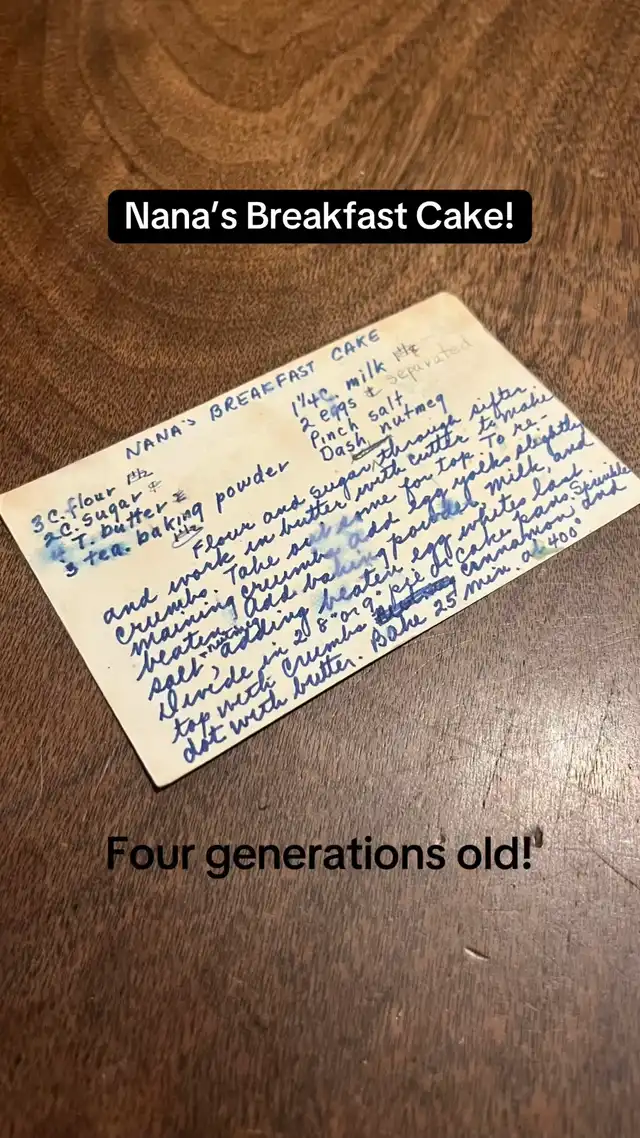 Nana's Breakfast Cake!
NANA'S BREAKFAST CAKE
3 C. flour
2 C. sugar
T. butter
3 tea. baking powder
1 1/4 C. milk
2 eggs separated
Pinch salt
Dash nutmeg
Flour and sugar through sifter
and work in butter with cutter to make
crumbs. Take out some for top. To re
maining crumbs add egg yolks slightly
beaten. Add baking powder, milk, and
salt, nutmeg adding beaten egg whites last.
Divide in 2 8" or 9" pie or cake pans. Sprinkle
top with crumbs cinnamon and
dot with butter. Bake 25 min. at 400°
Four generations old!